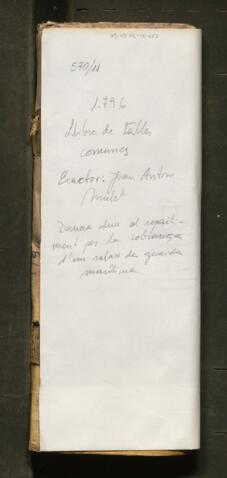 570/11
1.796
Llibre de talles
comunes
Exactor: Joan Antoni
Mulet
Darrera duu el repart-
ment per la cobrança
d'un salari de guarda
marítima